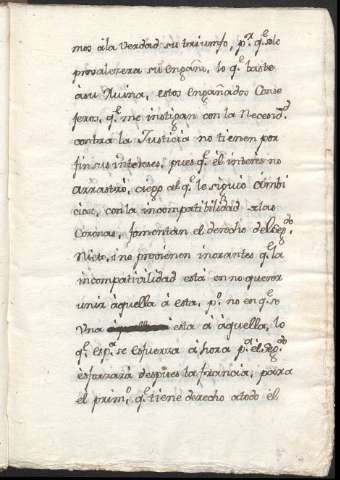 mos á la verdad su triunfo, p.ª q.e solo
prevalesera su engaño, lo q.e baste
á su Ruina, estos engañados Conse
jeros, q.e me instigan con la Necend.d
contra la Justicia no tienen por
fin sus intereses, pues q.e el interes no
arrastró, ciego al q.e le siguió Ambi
cioso, con la incompatibilidad de las
Coronas, fomentan el derecho del Seg.do
Nieto, i no previenen inorantes q.e la
incompativilidad está en no querer
unir aquella á esta, p.o no en q.e se
Una esta á aquella, lo
q.e Esp.a se esfuersa á hora p.a el Seg.do
esforsará despues la francia, para
el prim.o q.e tiene derecho á todo el